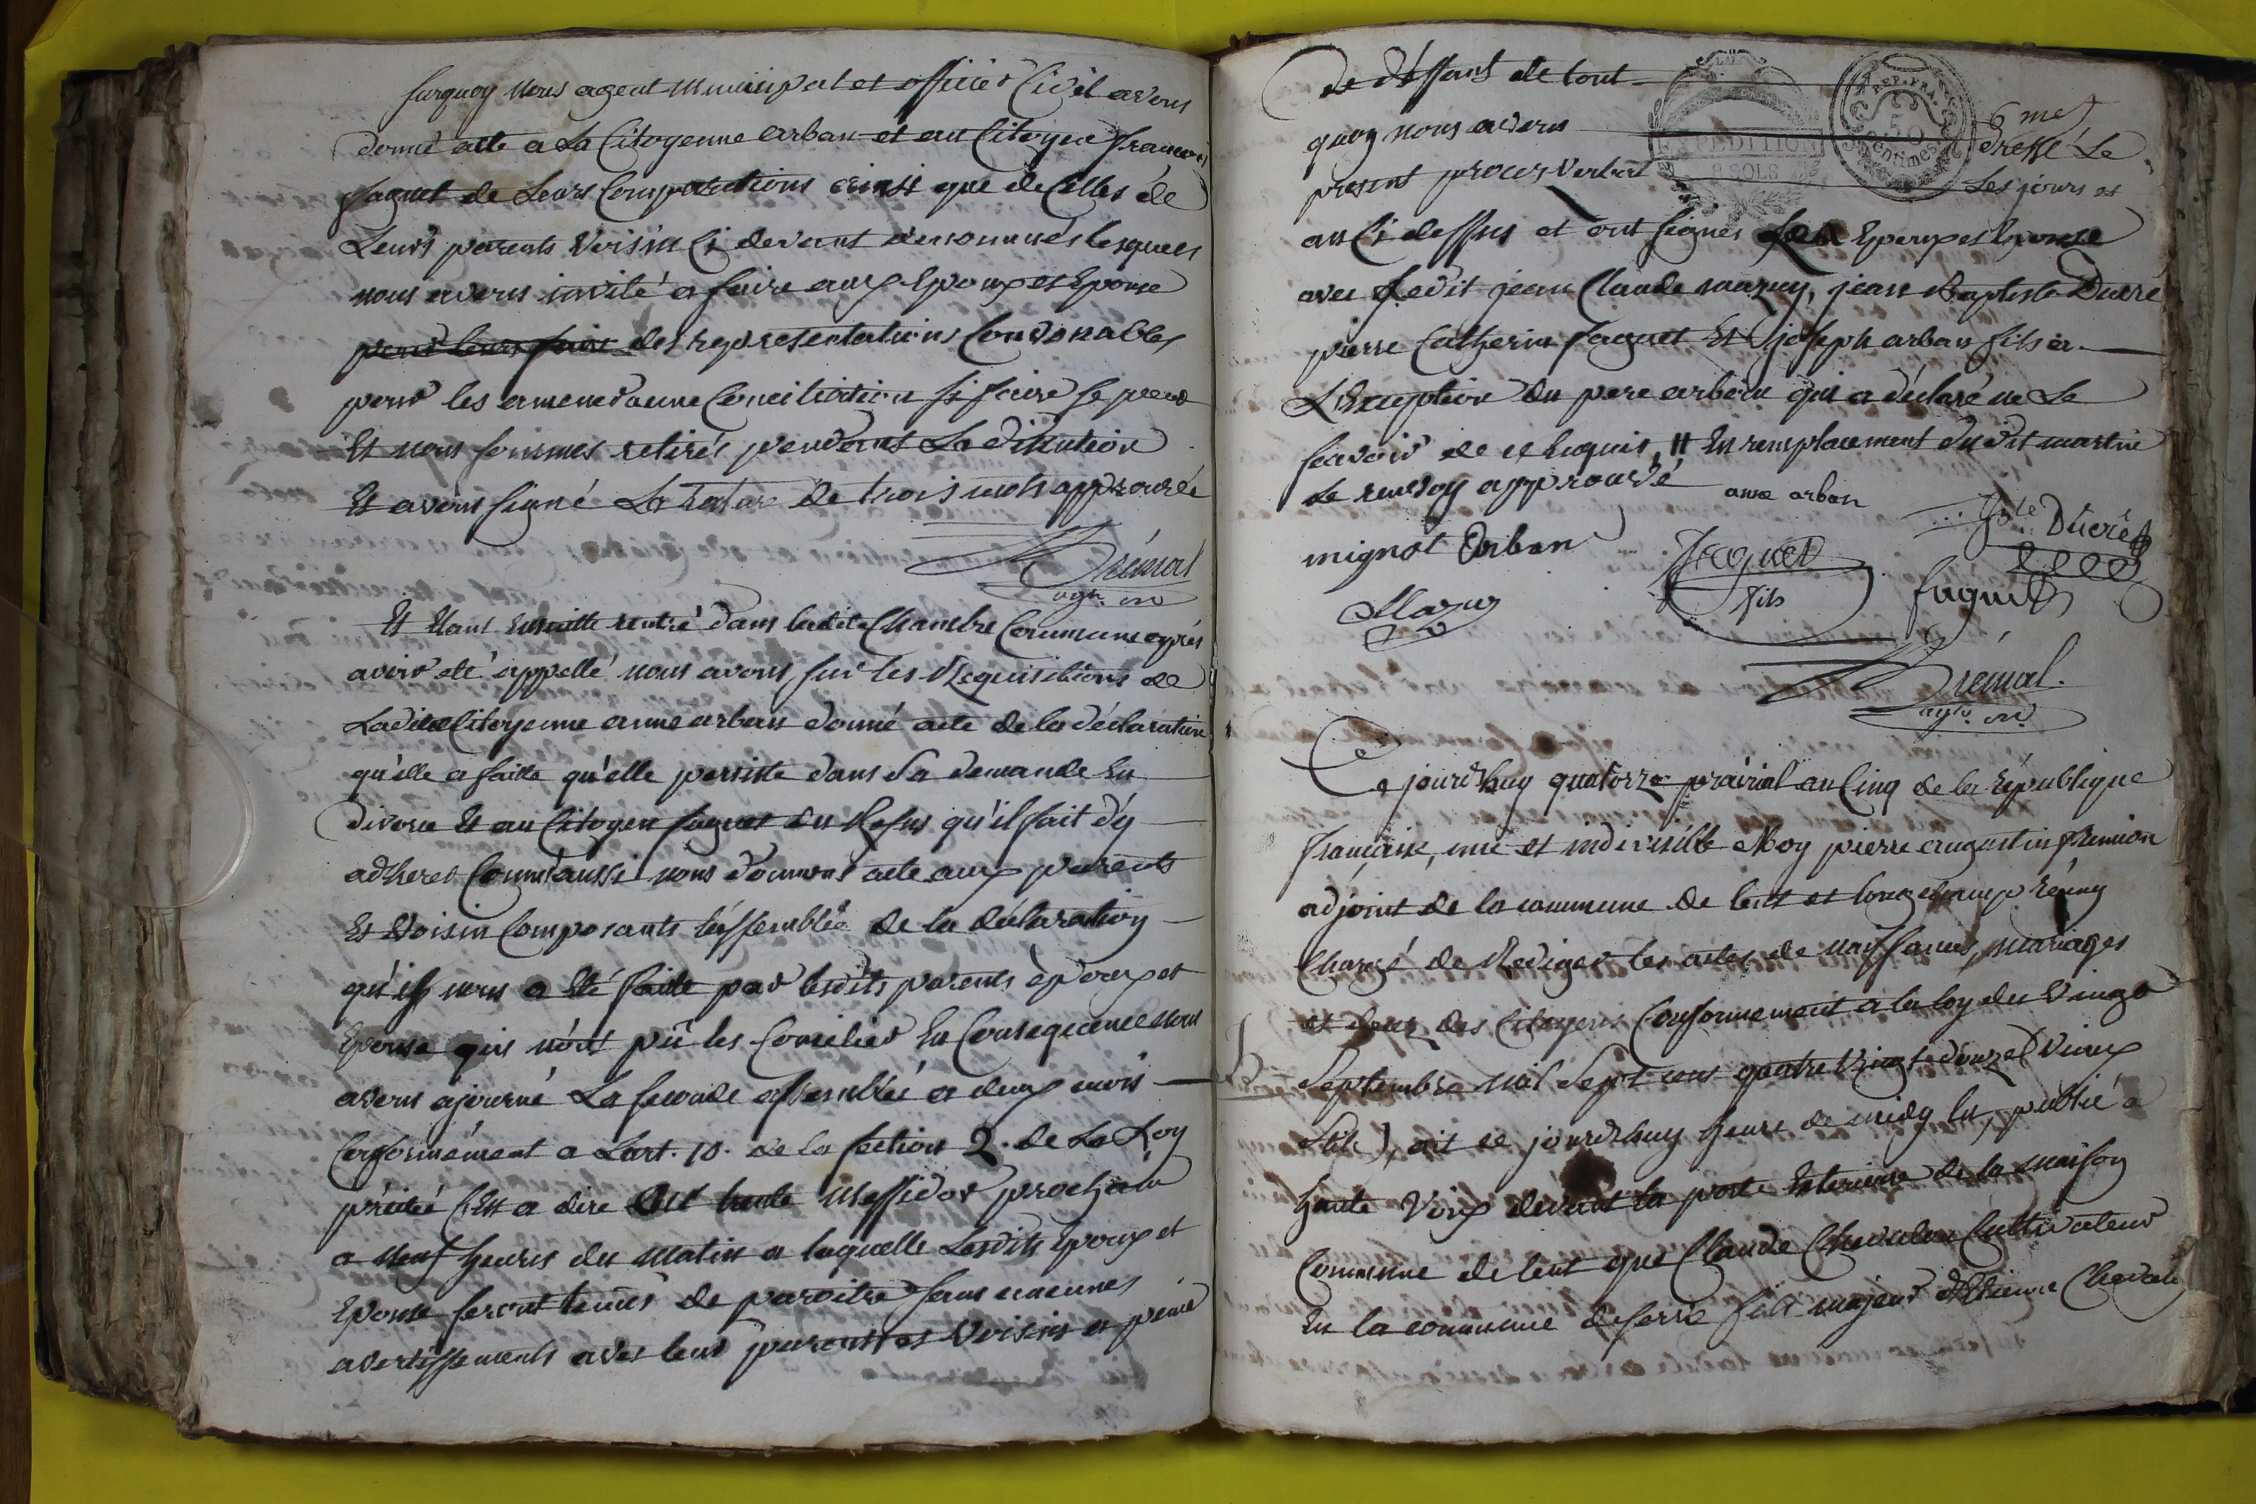 surquoy nous agent municipal et officier Civil avons
donné acte a La Citoyenne arban et au Citoyen francois
faguet de Leurs Comparutions ainsi que de Celles de
Leurs parents Voisin Ci devant denommés lesquels
nous avons invité a faire aux Epoux et Epouse
pour leurs faire des representations Convenables
pour les amener a une Conciliation si faire se peut
Et nous sommes retirés pendant La
Et avons signé La Rature de trois mots approuvée
Frémal
agt. m
Et Etant Ensuitte rentré dans ladite Chambre Commune aprés
avoir eté appellé nous avons sur les Requisitions de
Ladite Citoyenne anne arban donné acte de la déclaration
qu'elle a faitte qu'elle persiste dans Sa demande En
divorce Et au Citoyen faguet du Refus qu'il fait d'y
adherer Comm'aussi nous donnons acte aux parents
Et Voisin Composants l'assemblée de la déclaration
qu'ils nous a Eté faitte par lesdits parents époux et
Epouse qui n'ont pû les Concilier En Consequence nous
avons ajourné La seconde assemblée a deux mois
Conformément a L'art. 10. de la section 2. de La Loy
précitée C'Est a dire au trente Messidor prochain
a neuf heures du matin a laquelle Lesdits Epoux et
Epouse seront tenus de paroitre sans
avertissements avec leurs parents et Voisins a peine
de déffant de tout
quoy nous avons 6 mes
dressé Le
present procés Verbal Les jours et
an Ci dessus et ont signés Les Epoux et Epouse
avec Ledit jean Claude mazuy, jean Baptiste Ducré
pierre Catherin faguet Et joseph arban fils a
L'Exception du pere arban qui a déclaré ne Le
scavoir de ce Enquis, # En remplacement dudit martin
Le renvoy approuvé anne arban
Jbte Ducré
mignot Arban
faguet
fils
Mazuy
faguet
Frémal.
agt. m.
Ce jourd'huy quatorze prairial an Cinq de la République
francaise, une et indivisible Moy pierre augustin
adjoint de la commune de lent et longchamp réuny
Chargé de Rediger les actes de naissances, mariages
et deces des Citoyens Conformement a la loy du Vingt
Septembre Mil Sept cens quatre Vingt douze (Vieux
Stile), ait ce jourd'huy heure de midy lu, publié a
haute Voix devant la porte Exterieure de la maison
Commune de lent que Claude Chevalon Cultivateur
En la commune de servas fils majeur d'Etienne
EXPEDITION
8 SOLS
REP. FRA.
50
centimes